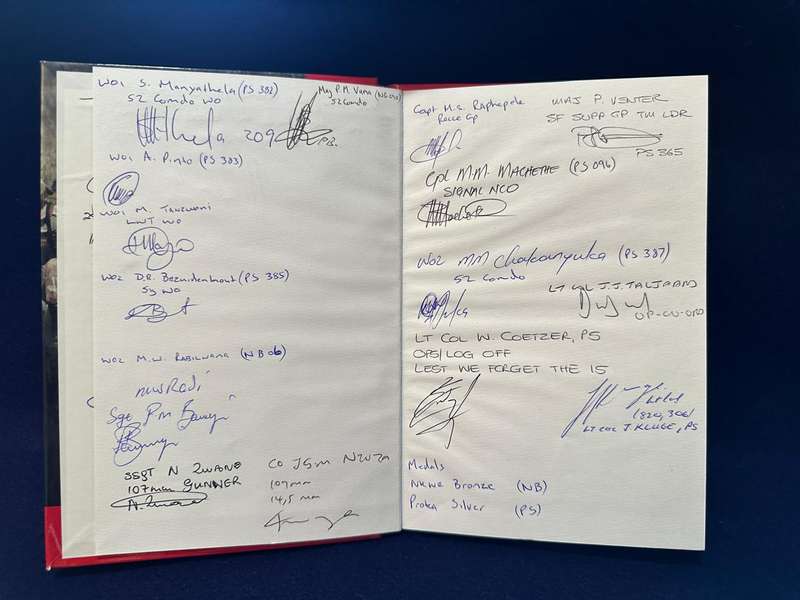 WO1 S. Manyathela (PS 382)
52 Comdo WO
209
Maj P.M. Vuma
52 Comdo
P.B.
WO1 A. Pinho (PS 383)
WO1 M. Tanzwani
WO
WO2 D.R. Bezuidenhout (PS 385)
Sy WO
WO2 M.W. Rabilwana (NB 06)
Sgt PM
SSGT N ZWANE
107mm GUNNER
N. Zwane
CO JSM NZUZA
107mm
14,5 mm
Capt M.S. Raphepele
Recce Gp
MAJ P. VENTER
SF SUPP GP TM LDR
PS 365
CPL MM. MACHETHE (PS 096)
SIGNAL NCO
WO2 MM Chakanyuka (PS 387)
52 Comdo
LT COL J.J. TALJAARD
OP-CO-ORD
LT COL W. COETZER, PS
OPS/LOG OFF
LEST WE FORGET THE 15
LT COL J KLUGE, PS
Medals
Nkwe Bronze (NB)
Proka Silver (PS)